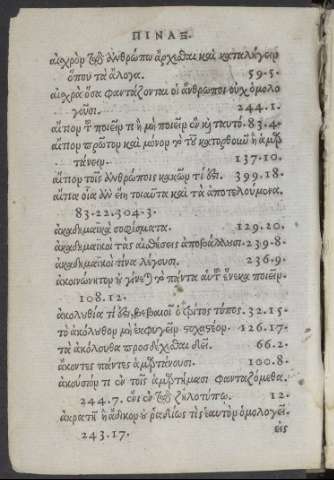 ΠΙΝΑΞ.
αἰσχρὸν τῷ ἀνθρώπῳ ἄρχεσθαι καὶ καταλήγειν
ὅπου τὰ ἄλογα. 59.5.
αἰσχρὰ ὅσα φαντάζονται οἱ ἄνθρωποι οὐχ ὁμολο
γοῦσι. 244.1.
αἴτιον τοῦ ποιεῖν τι ἢ μὴ ποιεῖν ἓν καὶ ταυτό. 83.4.
αἴτιον πρῶτον καὶ μόνον τοῦ κατορθοῦν ἢ ἁμαρ
τάνειν. 137.10.
αἴτιον τοῖς ἀνθρώποις κακῶν τί ἐστι. 399.18.
αἴτια οἷα ἂν ᾖ τοιαῦτα καὶ τὰ ἀποτελούμενα.
83.22.304.3.
ἀκαδημαϊκὰ σοφίσματα. 129.20.
ἀκαδημαϊκοὶ τὰς αἰσθήσεις ἀποβάλλουσι. 239.8.
ἀκαδημαϊκοὶ τίνα λέγουσι. 236.9.
ἀκοινώνητον οὐ γίνεται τὸ πάντα αὑτοῦ ἕνεκα ποιεῖν.
108.12.
ἀκολουθία τί ἐστι βεβαιοῖ ὁ τρίτος τόπος. 32.15.
τὸ ἀκόλουθον μὴ ἐκφυγεῖν 126.17.
τὰ ἀκόλουθα προσδέχεσθαι δεῖ. 66.2.
ἄκοντες πάντες ἁμαρτάνουσι. 100.8.
ἀκούσιόν τι ἐν τοῖς ἁμαρτήμασι φανταζόμεθα.
244.7. ὡς ἐν τῷ ζηλοτύπῳ. 12.
ἀκρατῆ ἢ ἄδικον οὐ ῥᾳδίως τις ἑαυτὸν ὁμολογεῖ.
243.17. εἰς